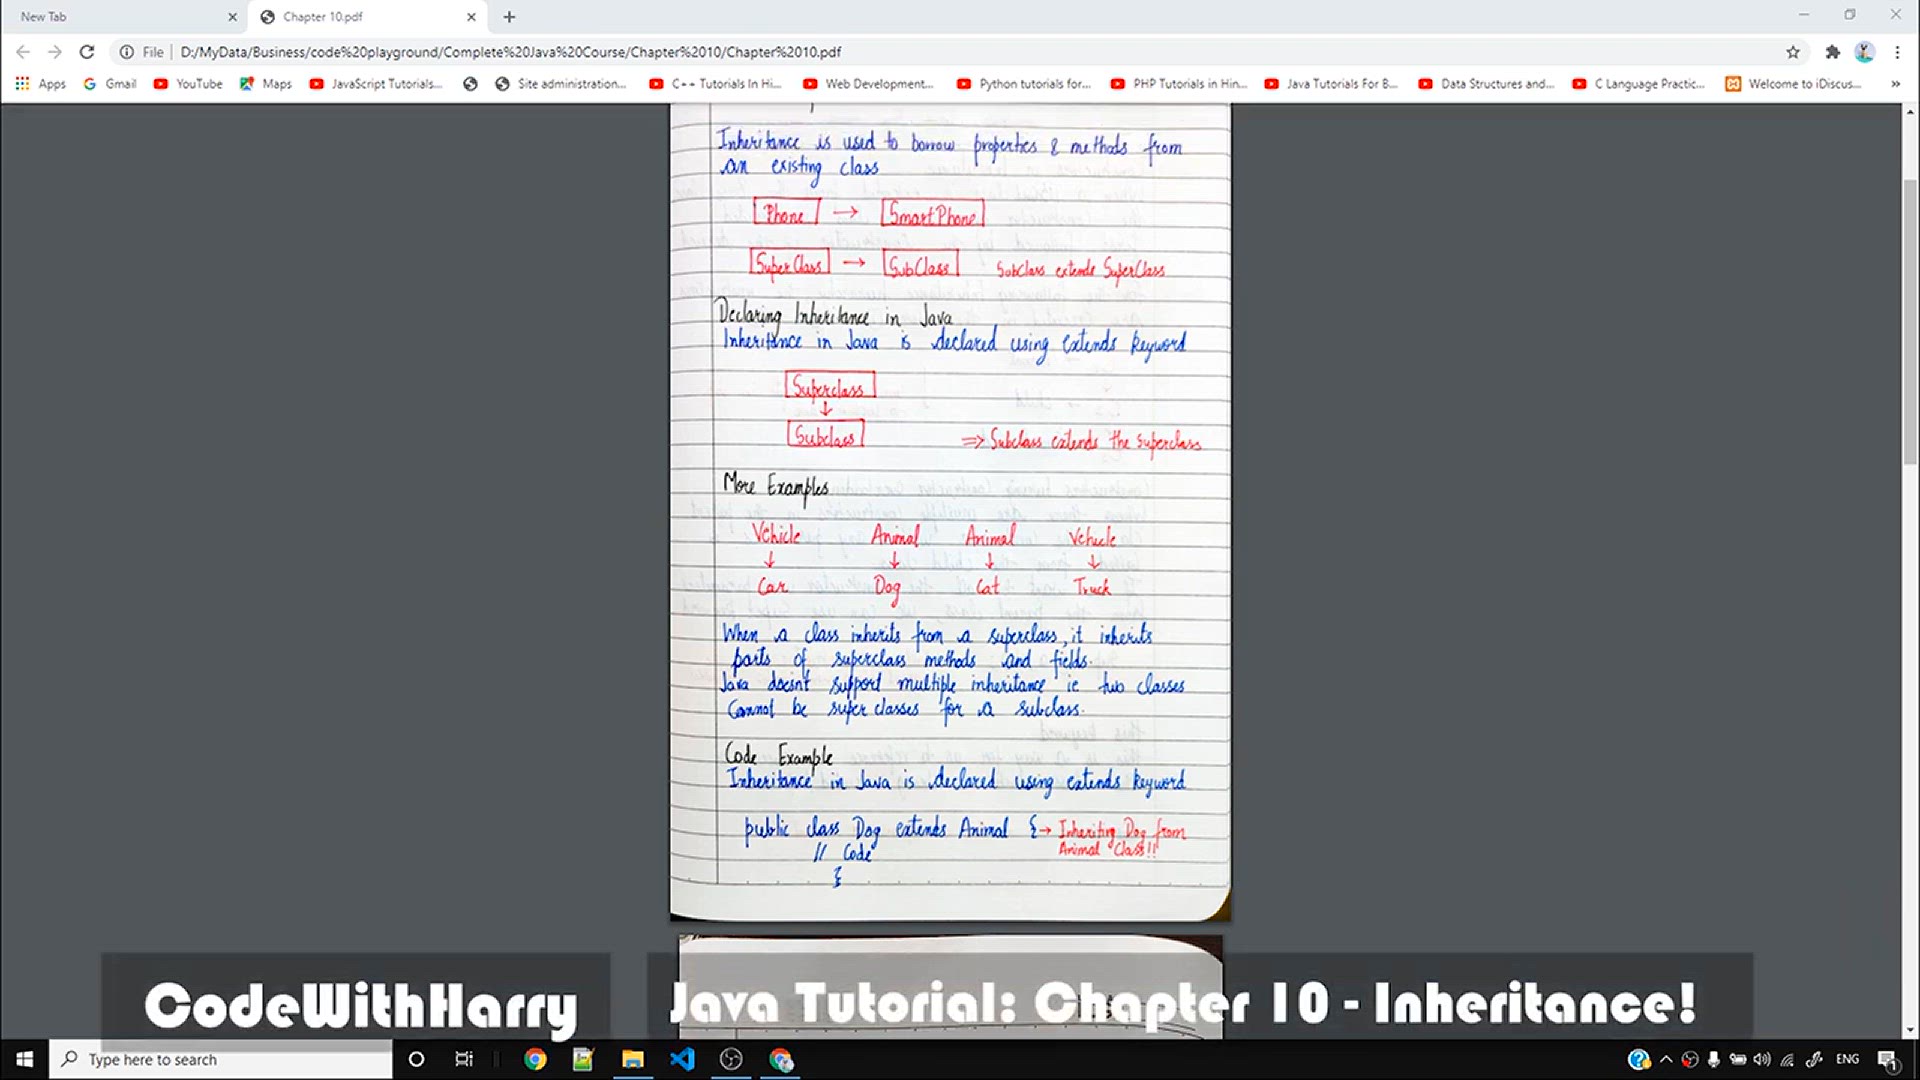 New Tab
Chapter 10.pdf
File | D:/MyData/Business/code%20playground/Complete%20Java%20Course/Chapter%2010/Chapter%2010.pdf
Apps Gmail YouTube Maps JavaScript Tutorials... Site administration... C++ Tutorials In Hi... Web Development... Python tutorials for... PHP Tutorials in Hin... Java Tutorials For B... Data Structures and... C Language Practic... Welcome to iDiscus... »
Inheritance is used to borrow properties & methods from
an existing class
Phone → SmartPhone
SuperClass → SubClass SubClass extends SuperClass
Declaring Inheritance in Java
Inheritance in Java is declared using extends keyword
Superclass
↓
Subclass ⇒ Subclass extends the superclass
More Examples
Vehicle Animal Animal Vehicle
↓ ↓ ↓ ↓
Car Dog Cat Truck
When a class inherits from a superclass, it inherits
parts of superclass methods and fields.
Java doesn't support multiple inheritance ie two classes
Cannot be super classes for a subclass.
Code Example
Inheritance in Java is declared using extends keyword
public class Dog extends Animal { → Inheriting Dog from
Animal Class!!
// Code
}
CodeWithHarry Java Tutorial: Chapter 10 - Inheritance!
Type here to search
ENG